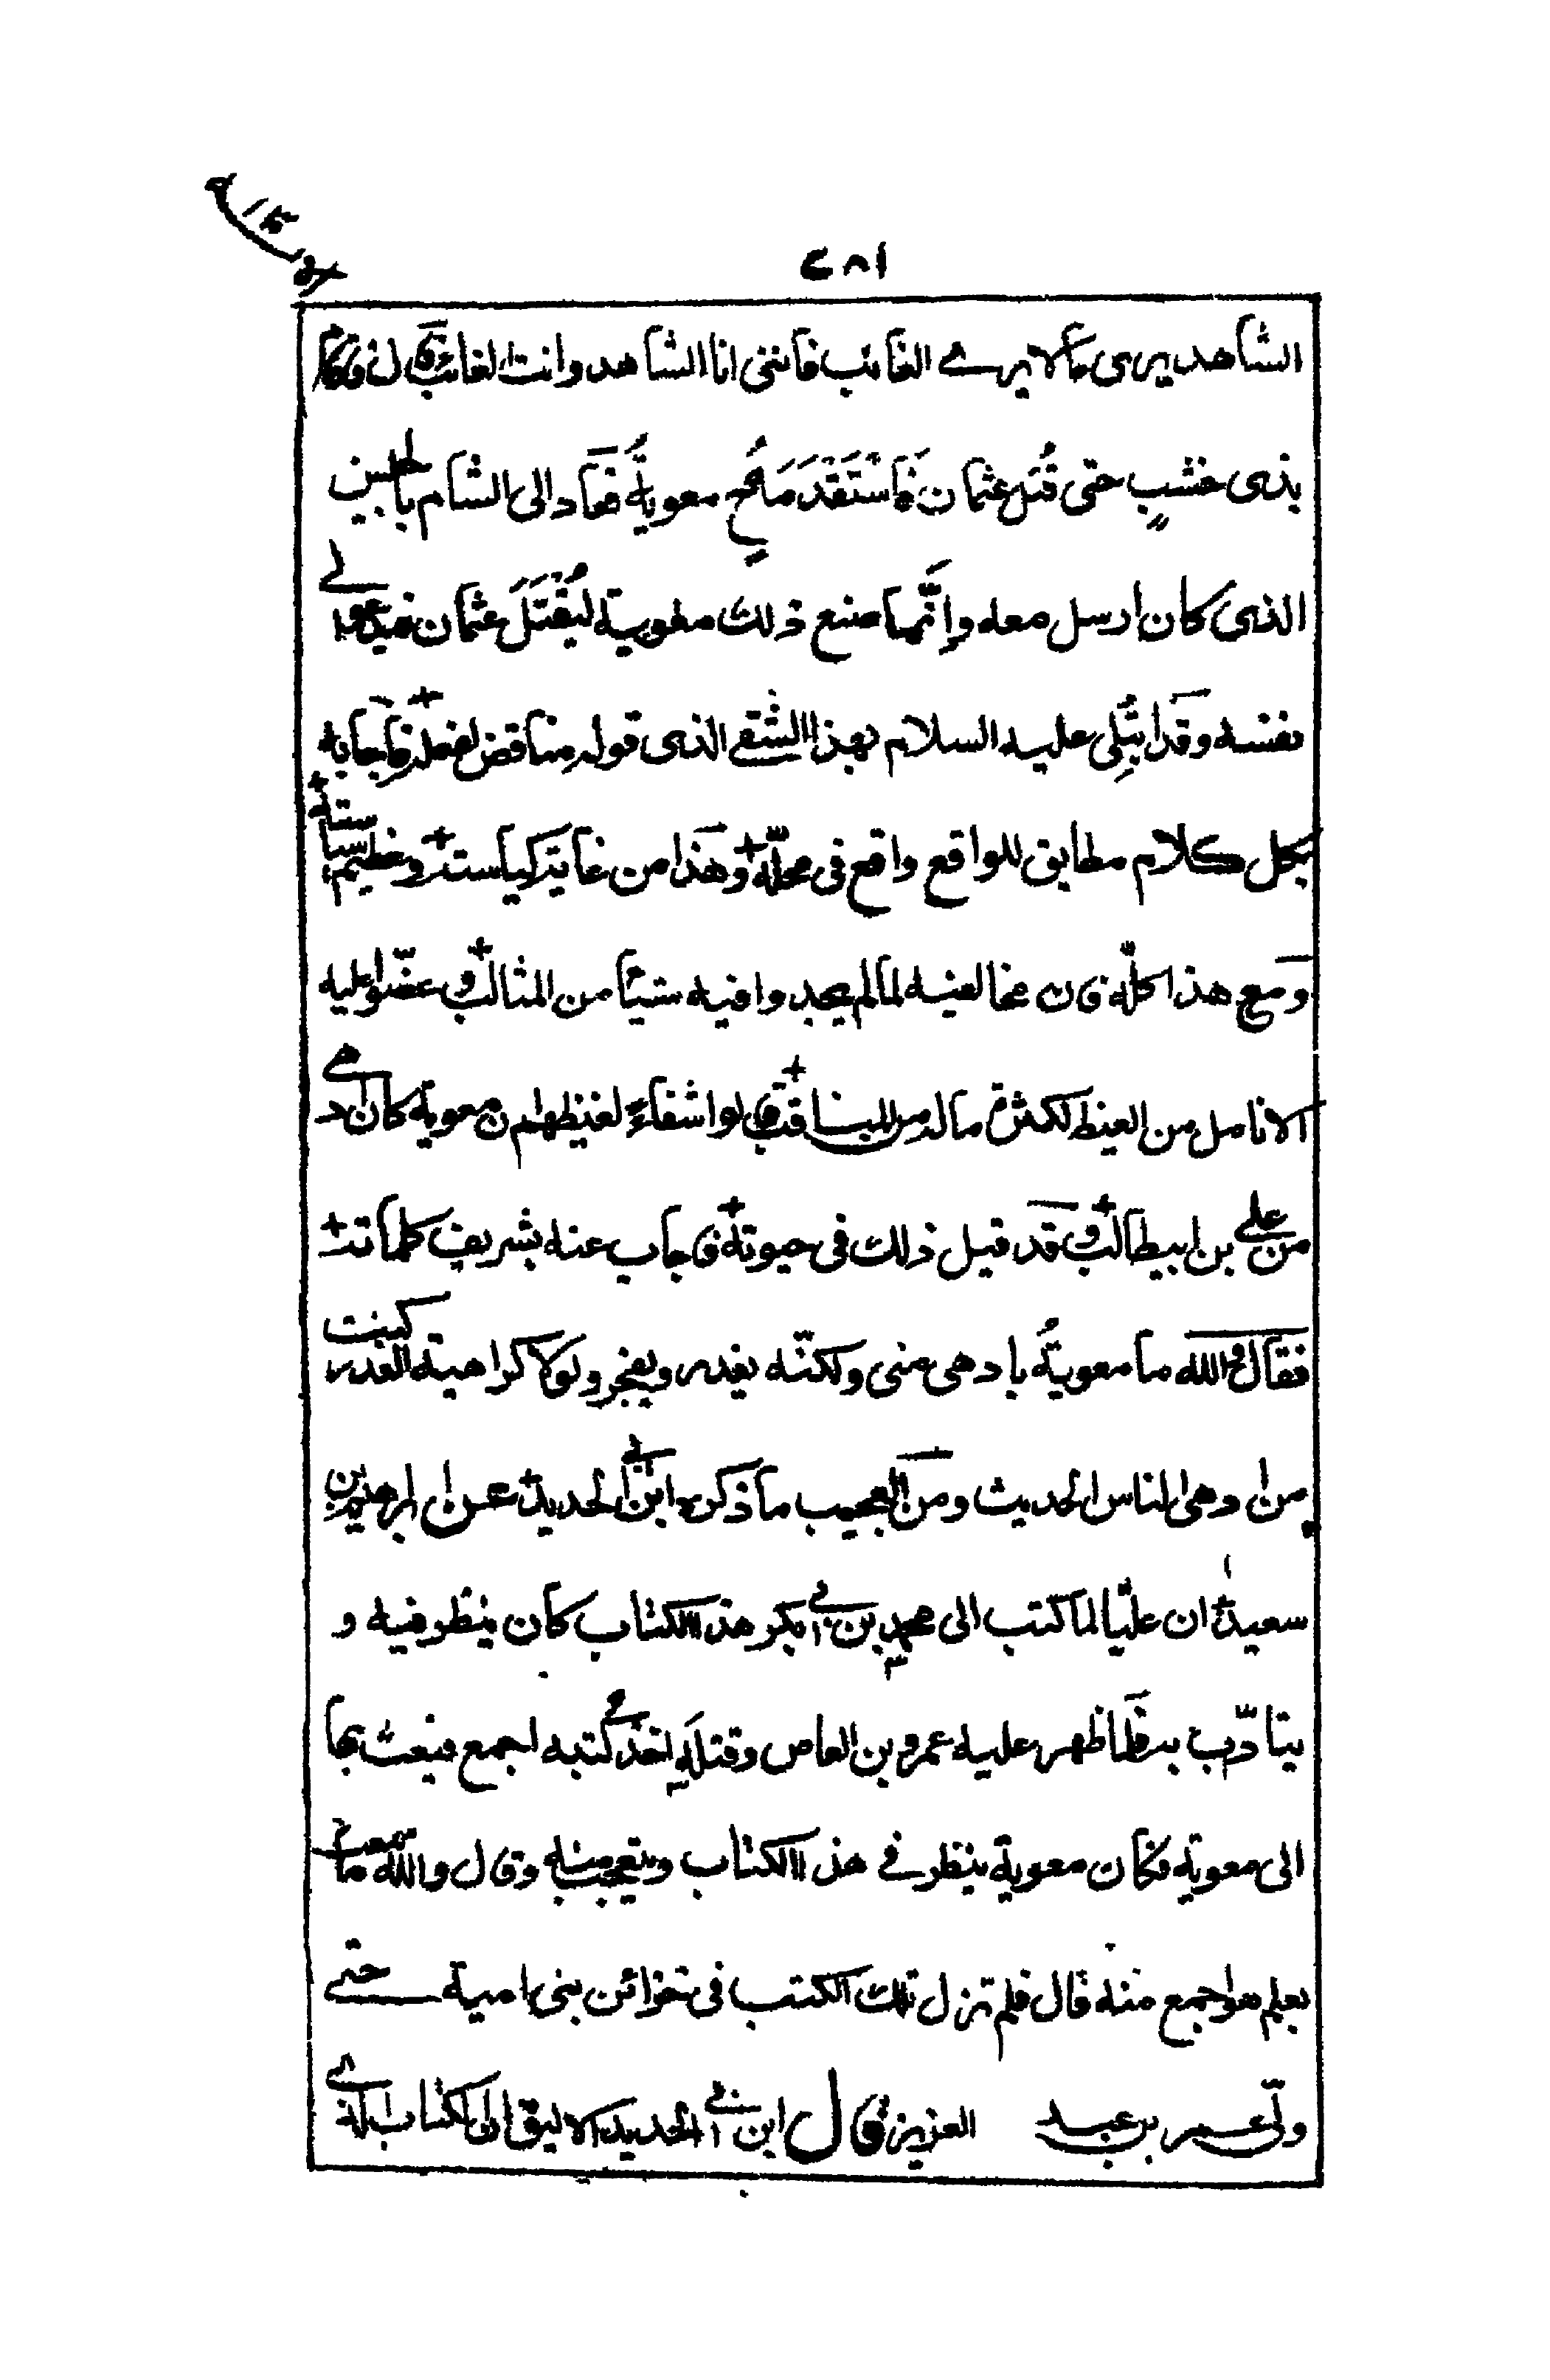 ٢٨١
الشاهد يرى ما لا يرے الغائب فاننى انا الشاهد وانت الغائب قال فاقام
بذى خشب حتى قُتل عثمان فَاسْتَقْدَمَهُ معوية فعاد الى الشام بالجيش
الذى كان ارسل معه وإنَّما صنع ذلك معوية ليُقْتَلَ عثمان فيدعو الے
نفسه وقد ابتُلِى عليه السلام بهذا الشقے الذى قوله مناقض لفعله فاجابه
بكل كلام مطابق للواقع واقع فى محلّه وهذا من غاية كياسته وعظيم سياسته
ومع هذا كلّه فان مخالفيه لما لم يجدوا فيه شيئا من المثالب وعضّوا عليه
الانامل من الغيظ لكثرة ماله من المناقب قالوا شفاءً لغيظهم ان معوية كان ادهے
من علے بن ابيطالب وقد قيل ذلك فى حيوته فاجاب عنه بشريف كلماته
فقال والله ما معويةُ بادهى منى ولكنّه يغدر ويفجر ولولا كراهية الغدر كنت
من ادهى الناس الحديث ومن العجيب ما ذكره ابن ابے الحديد عن ابراهيم بن
سعيد ان عليّا لما كتب الى محمد بن ابے بكر هذا الكتاب كان ينظر فيه و
يتادّب به فلما ظهر عليه عمرو بن العاص وقتله اخذ كتبه اجمع فبعث بها
الى معوية فكان معوية ينظر فے هذا الكتاب ويتعجب منه وقال والله ما سمعت
بعلم هو اجمع منه قال فلم تزل تلك الكتب فى خزائن بنى امية حتے
ولّى عمر بن عبد العزيز قال ابن ابے الحديد الاليق ان الكتاب الذے